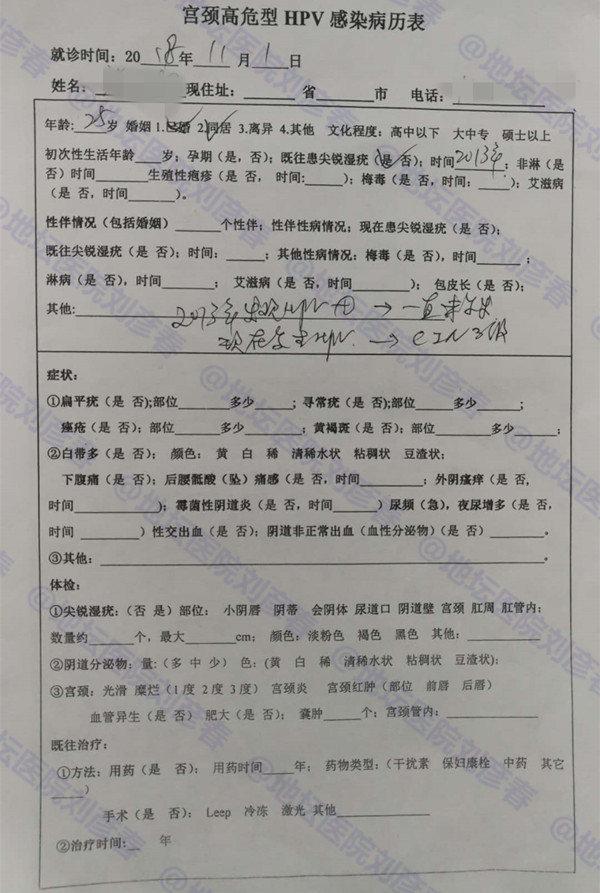 宫颈高危型 HPV 感染病历表
就诊时间：2018年 11 月 1 日
姓名： 现住址：______ 省______市 电话：
年龄：25岁 婚姻 1.已婚 2.同居 3.离异 4.其他 文化程度：高中以下 大中专 硕士以上
初次性生活年龄___岁；孕期（是，否）；既往患尖锐湿疣（是 否）；时间2013年；非淋（是
否）时间______生殖性疱疹（是 否， 时间：_____）；梅毒（是 否，时间：_____）；艾滋病
（是 否，时间_____）。
性伴情况（包括婚姻）______个性伴；性伴性病情况：现在患尖锐湿疣（是 否）；
既往尖锐湿疣（是 否）；时间：_____；其他性病情况：梅毒（是 否），时间______；
淋病（是 否），时间______； 艾滋病（是 否，时间________）； 包皮长（是 否）；
其他：2013年发现HPV → 一直未
现在 HPV → CIN 3级
症状：
①扁平疣（是 否）；部位______多少_____；寻常疣（是 否）；部位______多少_____；
痤疮（是 否）；部位______多少______；黄褐斑（是 否）；部位______多少_____；
②白带多（是 否）； 颜色： 黄 白 稀 清稀水状 粘稠状 豆渣状；
下腹痛（是 否）；后腰骶酸（坠）痛感（是 否，时间________）；外阴瘙痒（是 否，
时间__________）；霉菌性阴道炎（是 否，时间_____）尿频（急），夜尿增多（是 否，
时间 _______）性交出血（是 否）；阴道非正常出血（血性分泌物）（是 否）______。
③其他：______________________________。
体检：
①尖锐湿疣：（否 是）部位： 小阴唇 阴蒂 会阴体 尿道口 阴道壁 宫颈 肛周 肛管内；
数量约_____个，最大______cm； 颜色：淡粉色 褐色 黑色 其他：________
②阴道分泌物：量：（多 中 少） 色：（黄 白 稀 清稀水状 粘稠状 豆渣状）；
③宫颈：光滑 糜烂（1度 2度 3度） 宫颈炎 宫颈红肿（部位 前唇 后唇）
血管异生（是 否） 肥大（是 否）； 囊肿_____个；宫颈管内：__________
既往治疗：
①方法：用药（是 否）； 用药时间____年； 药物类型：（干扰素 保妇康栓 中药 其它
____）
手术（是 否）： Leep 冷冻 激光 其他__________
②治疗时间：__ 年
@地坛医院刘彦春